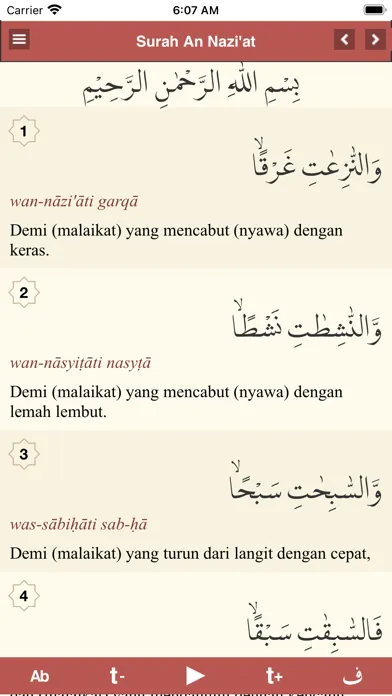 Carrier 6:07 AM
Surah An Nazi'at
بِسْمِ اللّٰهِ الرَّحْمٰنِ الرَّحِيْمِ
1
وَالنّٰزِعٰتِ غَرْقًاۙ
wan-nāzi'āti garqā
Demi (malaikat) yang mencabut (nyawa) dengan
keras.
2
وَّالنّٰشِطٰتِ نَشْطًاۙ
wan-nāsyiṭāti nasyṭā
Demi (malaikat) yang mencabut (nyawa) dengan
lemah lembut.
3
وَّالسّٰبِحٰتِ سَبْحًاۙ
was-sābiḥāti sab-ḥā
Demi (malaikat) yang turun dari langit dengan cepat,
4
فَالسّٰبِقٰتِ سَبْقًاۙ
Ab t- t+ ف